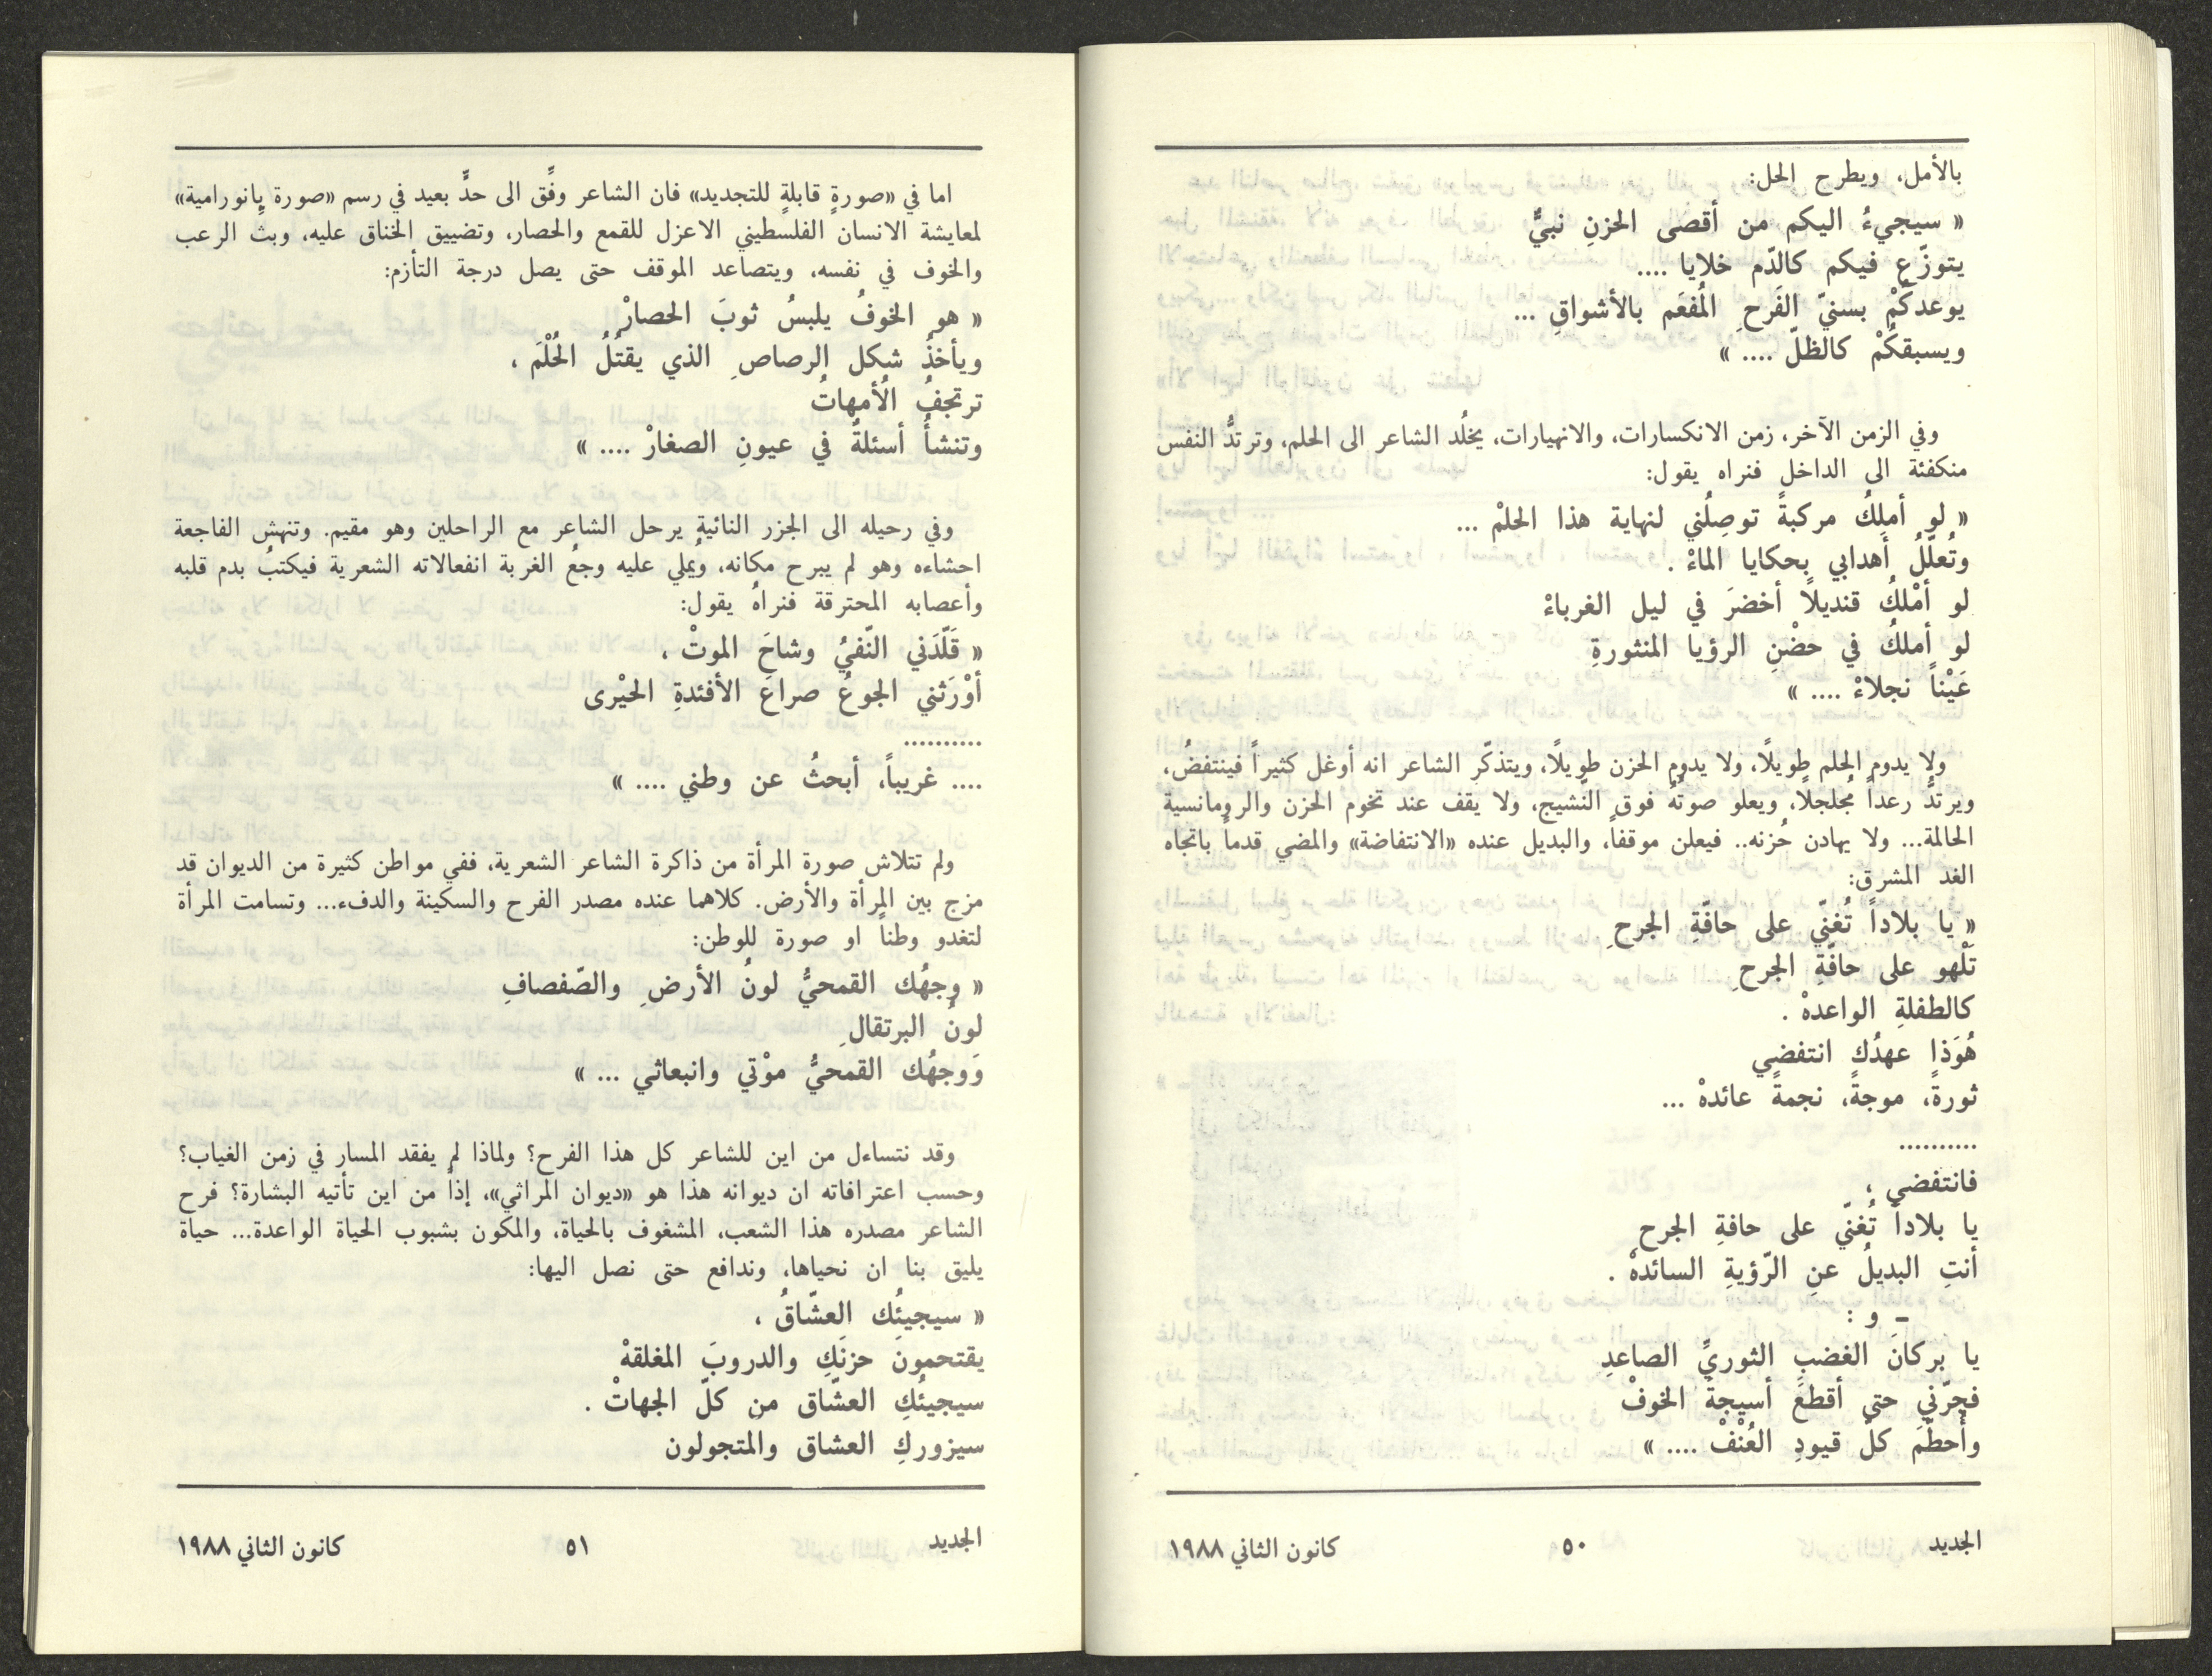 بالأمل، ويطرح الحل:
« سيجيءُ اليكم من أقصى الحزنِ نبيٌّ
يتوزّع فيكم كالدّم خلايا ....
يوعدكُمْ بسنيّ الفَرحِ المُفعَم بالأشواقِ ...
ويسبقكُمْ كالظلّ .... »
وفي الزمن الآخر، زمن الانكسارات، والانهيارات، يخلُد الشاعر الى الحلم، وترتدُّ النفس
منكفئة الى الداخل فنراه يقول:
« لو أملِكُ مركبةً توصِلُني لنهاية هذا الحلمْ ...
وتُعلّلُ أهدابي بحكايا الماءْ .
لو أمْلكُ قنديلاً أخضرَ في ليل الغرباءْ
لو أملكُ في حضْنِ الرؤيا المنثورةِ
عَيْناً نجلاءْ .... »
ولا يدوم الحلم طويلًا، ولا يدوم الحزن طويلًا، ويتذكّر الشاعر انه أوغل كثيراً فينتفضُ،
ويرتدُّ رعداً مُجلجلًا، ويعلو صوتُهُ فوق النّشيج، ولا يقف عند تخوم الحزن والرومانسية
الحالمة... ولا يهادن حُزنه.. فيعلن موقفاً، والبديل عنده «الانتفاضة» والمضي قدماً باتجاه
الغد المشرق:
« يا بلاداً تُغنّي على حافّةِ الجرحِ
تَلْهو على حافّةِ الجرحِ
كالطفلةِ الواعدهْ .
هُوَذا عهدُكِ انتفضي
ثورةً، موجةً، نجمةً عائدهْ ...
..........
فانتفضي ،
يا بلاداً تُغنّي على حافةِ الجرح
أنتِ البديلُ عنِ الرّؤيةِ السائدهْ .
ـ و :
يا بركانَ الغضبِ الثوريِّ الصاعدِ
فجرّني حتى أقطعَ أسيجةَ الخوفْ
وأُحطّمَ كلّ قيودِ العُنْفْ .... »
الجديد
٥٠
كانون الثاني ١٩٨٨
اما في «صورةٍ قابلةٍ للتجديد» فان الشاعر وفّق الى حدٍّ بعيد في رسم «صورة پانورامية»
لمعايشة الانسان الفلسطيني الاعزل للقمع والحصار، وتضييق الخناق عليه، وبث الرعب
والخوف في نفسه، ويتصاعد الموقف حتى يصل درجة التأزم:
« هو الخوفُ يلبسُ ثوبَ الحصارْ
ويأخذُ شكل الرصاصِ الذي يقتُلُ الحُلْمَ ،
ترتجفُ الأمهاتُ
وتنشأُ أسئلةٌ في عيونِ الصغارْ .... »
وفي رحيله الى الجزر النائية يرحل الشاعر مع الراحلين وهو مقيم. وتنهش الفاجعة
احشاءه وهو لم يبرح مكانه، ويُملي عليه وجعُ الغربة انفعالاته الشعرية فيكتبُ بدم قلبه
وأعصابه المحترقة فنراهُ يقول:
« قَلّدَني النّفيُ وشاحَ الموتْ ،
أوْرَثني الجوعُ صراعَ الأفئدةِ الحيْرى
..........
.... غريباً، أبحثُ عن وطني .... »
ولم تتلاش صورة المرأة من ذاكرة الشاعر الشعرية، ففي مواطن كثيرة من الديوان قد
مزج بين المرأة والأرض. كلاهما عنده مصدر الفرح والسكينة والدفء... وتسامت المرأة
لتغدو وطناً او صورة للوطن:
« وجهُك القمحيُّ لونُ الأرضِ والصّفصافِ
لونُ البرتقالِ
وَوجهُك القمحيُّ موْتي وانبعاثي ... »
وقد نتساءل من اين للشاعر كل هذا الفرح؟ ولماذا لم يفقد المسار في زمن الغياب؟
وحسب اعترافاته ان ديوانه هذا هو «ديوان المراثي»، إذاً من اين تأتيه البشارة؟ فرح
الشاعر مصدره هذا الشعب، المشغوف بالحياة، والمكون بشبوب الحياة الواعدة... حياة
يليق بنا ان نحياها، وندافع حتى نصل اليها:
« سيجيئُكِ العشّاقُ ،
يقتحمونَ حزنَكِ والدروبَ المغلقهْ
سيجيئُكِ العشّاق من كلّ الجهاتْ .
سيزوركِ العشاق والمتجولون
الجديد
٥١
كانون الثاني ١٩٨٨